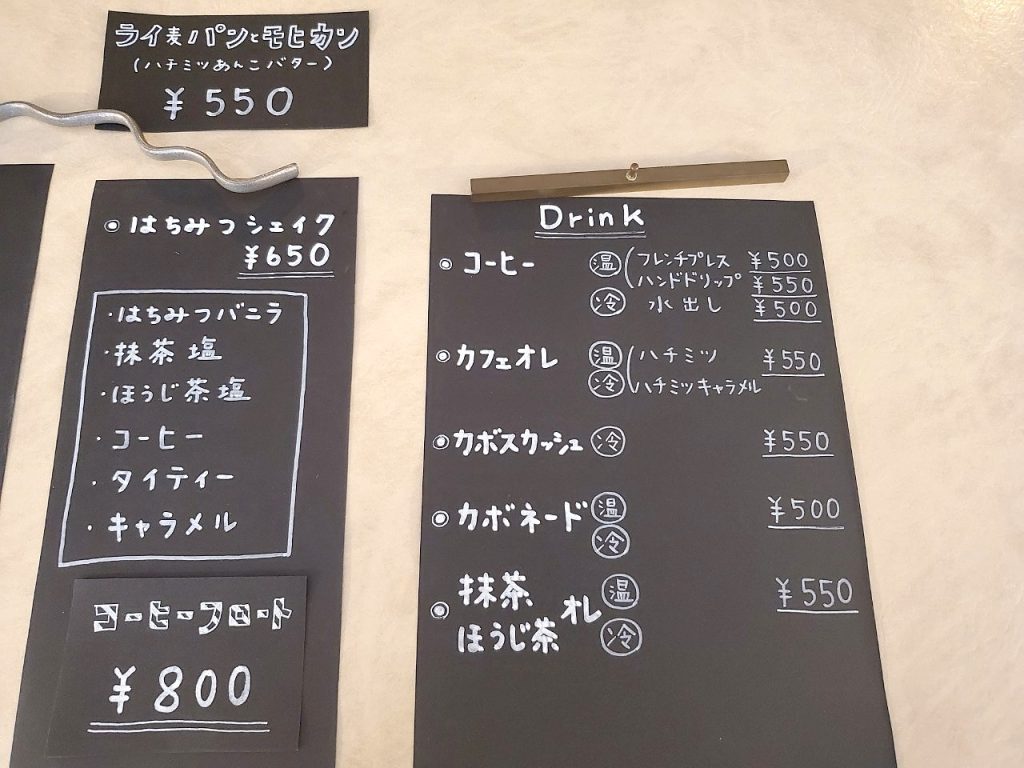 ライ麦パンとモヒカン
(ハチミツあんこバター)
¥550
◉はちみつシェイク
¥650
・はちみつバニラ
・抹茶塩
・ほうじ茶塩
・コーヒー
・タイティー
・キャラメル
コーヒーフロート
¥800
Drink
◉コーヒー 温 フレンチプレス ¥500
ハンドドリップ ¥550
冷 水出し ¥500
◉カフェオレ 温 ハチミツ ¥550
冷 ハチミツキャラメル
◉カボスカッシュ 冷 ¥550
◉カボネード 温 ¥500
冷
◉抹茶 オレ 温 ¥550
ほうじ茶 冷